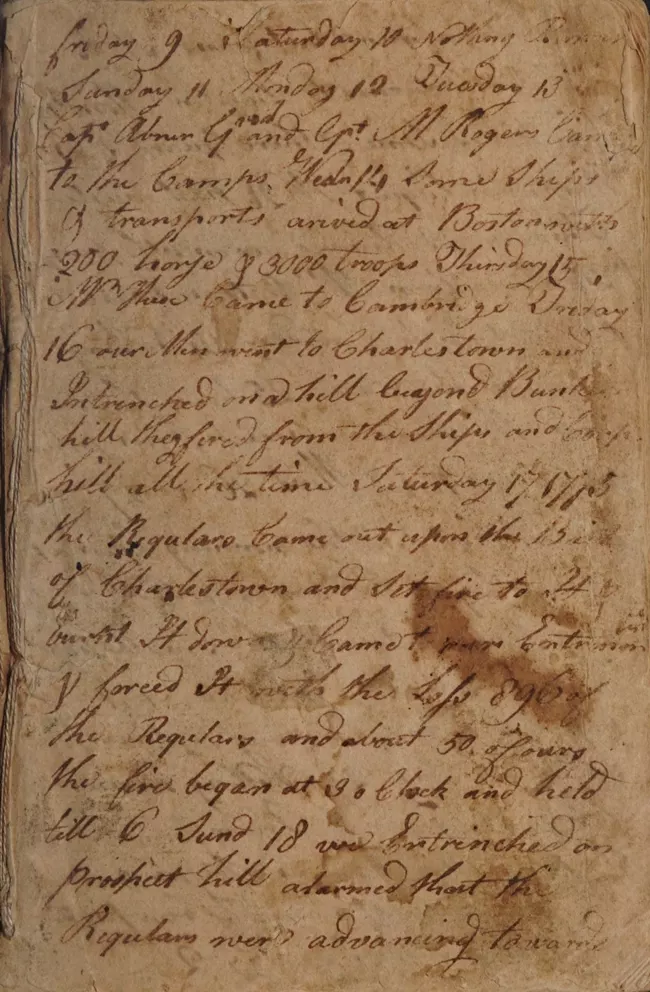 friday 9 Saturday 10 Nothing
Sunday 11 Monday 12 Tuesday 13
Capt Abner and Cpt. M Rogers Came
to the Camps. Some Ships
& transports arived at Boston with
200 horse & 3000 troops Thirsday 15
Came to Cambridge Friday
16 our Men went to Charlestown and
Intrenched on a hill beyond Bunker
hill they fired from the Ships and
hill all the time Saturday 17 1775
the Regulars Came out upon the
of Charlestown and Set fire to It &
It down & Came t our
& forced It with the Loss 896 of
the Regulars and about 50 of ours
the fire began at 3 o Clock and held
till 6 Sund 18 we Entrinched on
Prospect hill alarmed that the
Regulars were advancing towards